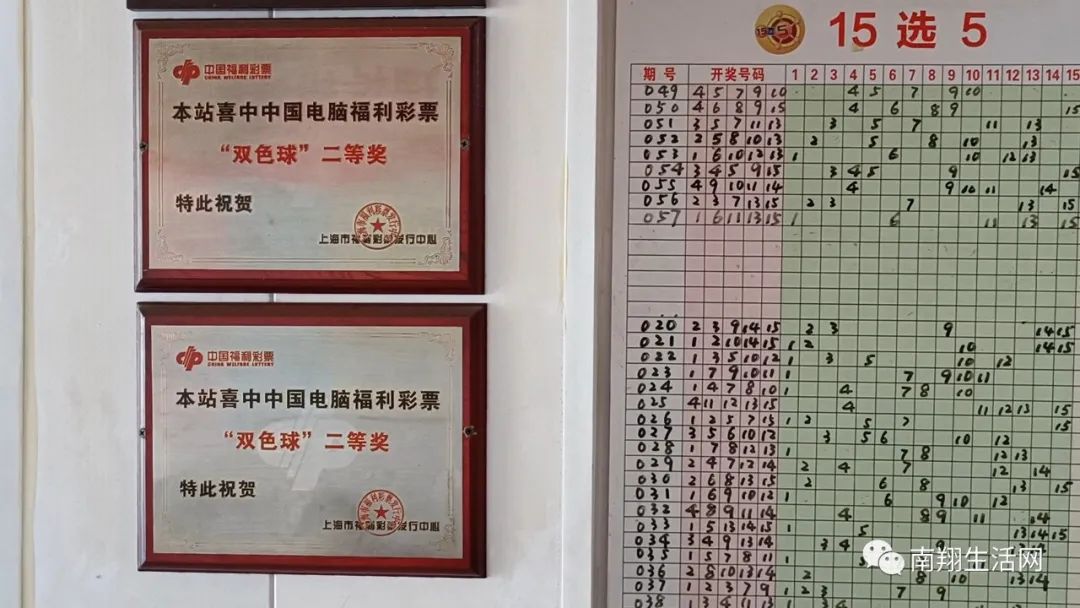 中国福利彩票
CHINA WELFARE LOTTERY
本站喜中中国电脑福利彩票
“双色球”二等奖
特此祝贺
上海市福利彩票发行中心
中国福利彩票
CHINA WELFARE LOTTERY
本站喜中中国电脑福利彩票
“双色球”二等奖
特此祝贺
上海市福利彩票发行中心
15选5
期号 开奖号码 1 2 3 4 5 6 7 8 9 10 11 12 13 14 15
049 4 5 7 9 10 4 5 7 9 10
050 4 6 8 9 15 4 6 8 9 15
051 3 5 7 11 13 3 5 7 11 13
052 2 5 8 10 13 2 5 8 10 13
053 1 6 10 12 13 1 6 10 12 13
054 3 4 5 9 15 3 4 5 9 15
055 4 9 10 11 14 4 9 10 11 14
056 2 3 7 13 15 2 3 7 13 15
057 1 6 11 13 15 1 6 11 13 15
020 2 3 9 14 15 2 3 9 14 15
021 1 2 10 14 15 1 2 10 14 15
022 1 3 5 10 12 1 3 5 10 12
023 1 7 9 10 11 1 7 9 10 11
024 1 4 7 8 10 1 4 7 8 10
025 4 11 12 13 15 4 11 12 13 15
026 1 2 5 7 15 1 2 5 7 15
027 3 5 6 10 12 3 5 6 10 12
028 1 7 8 12 13 7 8 12 13
029 2 4 7 12 14 2 4 7 12 14
030 2 6 8 13 15 2 6 8 13 15
031 1 6 9 10 12 6 9 10 12
032 4 8 9 11 14 4 8 9 11 14
033 1 5 13 14 15 1 5 13 14 15
034 3 4 9 13 14 3 4 9 13 14
035 1 5 7 8 11 1 5
036 2 8 10 13 14 2 8 10 13 14
037 1 2 3 7 9 1 2 3 7 9
038 1 3 4 11 13 1 3 4 11 13
南翔生活网